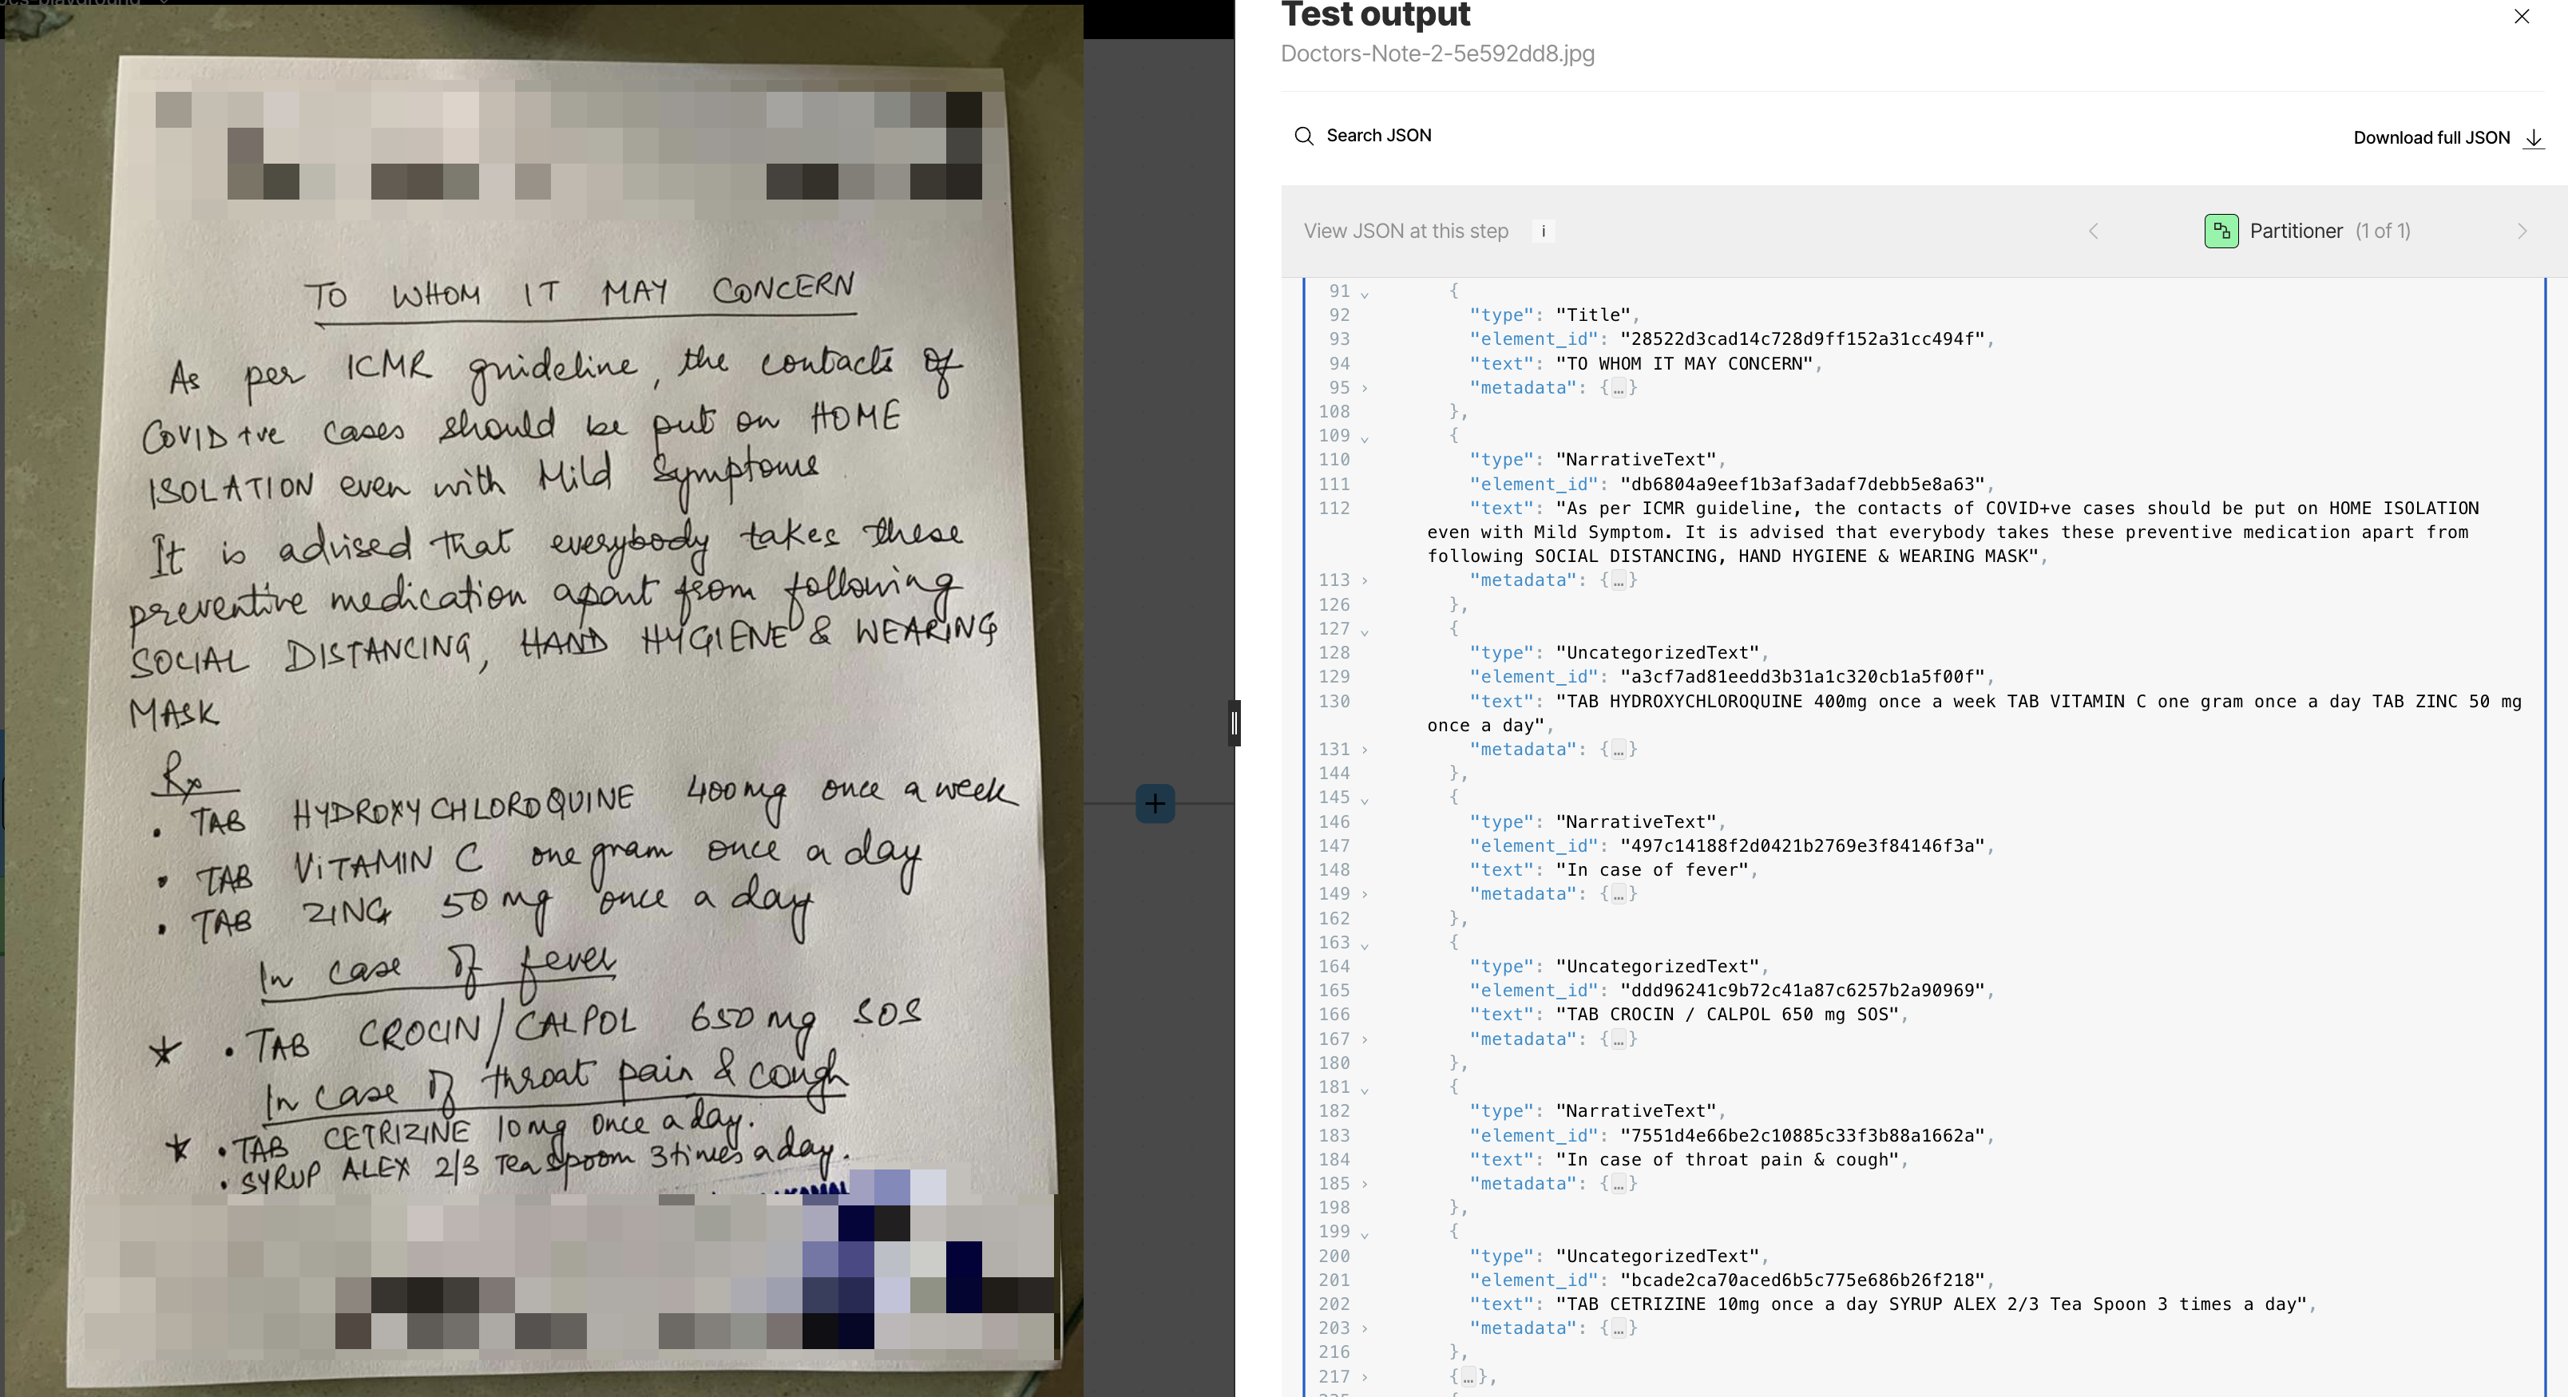 TO WHOM IT MAY CONCERN
As per ICMR guideline, the contacts of
COVID +ve cases should be put on HOME
ISOLATION even with Mild Symptoms
It is advised that everybody takes these
preventive medication apart from following
SOCIAL DISTANCING, HAND HYGIENE & WEARING
MASK
Rx
• TAB HYDROXYCHLOROQUINE 400mg once a week
• TAB VITAMIN C one gram once a day
• TAB ZINC 50 mg once a day
In case of fever
★ • TAB CROCIN/CALPOL 650 mg SOS
In case of throat pain & cough
★ • TAB CETRIZINE 10mg once a day.
• SYRUP ALEX 2/3 Tea spoom 3 times a day.
Test output
Doctors-Note-2-5e592dd8.jpg
Search JSON
Download full JSON
View JSON at this step i
Partitioner (1 of 1)
91 {
92 "type": "Title",
93 "element_id": "28522d3cad14c728d9ff152a31cc494f",
94 "text": "TO WHOM IT MAY CONCERN",
95 "metadata": {…}
108 },
109 {
110 "type": "NarrativeText",
111 "element_id": "db6804a9eef1b3af3adaf7debb5e8a63",
112 "text": "As per ICMR guideline, the contacts of COVID+ve cases should be put on HOME ISOLATION
even with Mild Symptom. It is advised that everybody takes these preventive medication apart from
following SOCIAL DISTANCING, HAND HYGIENE & WEARING MASK",
113 "metadata": {…}
126 },
127 {
128 "type": "UncategorizedText",
129 "element_id": "a3cf7ad81eedd3b31a1c320cb1a5f00f",
130 "text": "TAB HYDROXYCHLOROQUINE 400mg once a week TAB VITAMIN C one gram once a day TAB ZINC 50 mg
once a day",
131 "metadata": {…}
144 },
145 {
146 "type": "NarrativeText",
147 "element_id": "497c14188f2d0421b2769e3f84146f3a",
148 "text": "In case of fever",
149 "metadata": {…}
162 },
163 {
164 "type": "UncategorizedText",
165 "element_id": "ddd96241c9b72c41a87c6257b2a90969",
166 "text": "TAB CROCIN / CALPOL 650 mg SOS",
167 "metadata": {…}
180 },
181 {
182 "type": "NarrativeText",
183 "element_id": "7551d4e66be2c10885c33f3b88a1662a",
184 "text": "In case of throat pain & cough",
185 "metadata": {…}
198 },
199 {
200 "type": "UncategorizedText",
201 "element_id": "bcade2ca70aced6b5c775e686b26f218",
202 "text": "TAB CETRIZINE 10mg once a day SYRUP ALEX 2/3 Tea Spoon 3 times a day",
203 "metadata": {…}
216 },
217 {…},